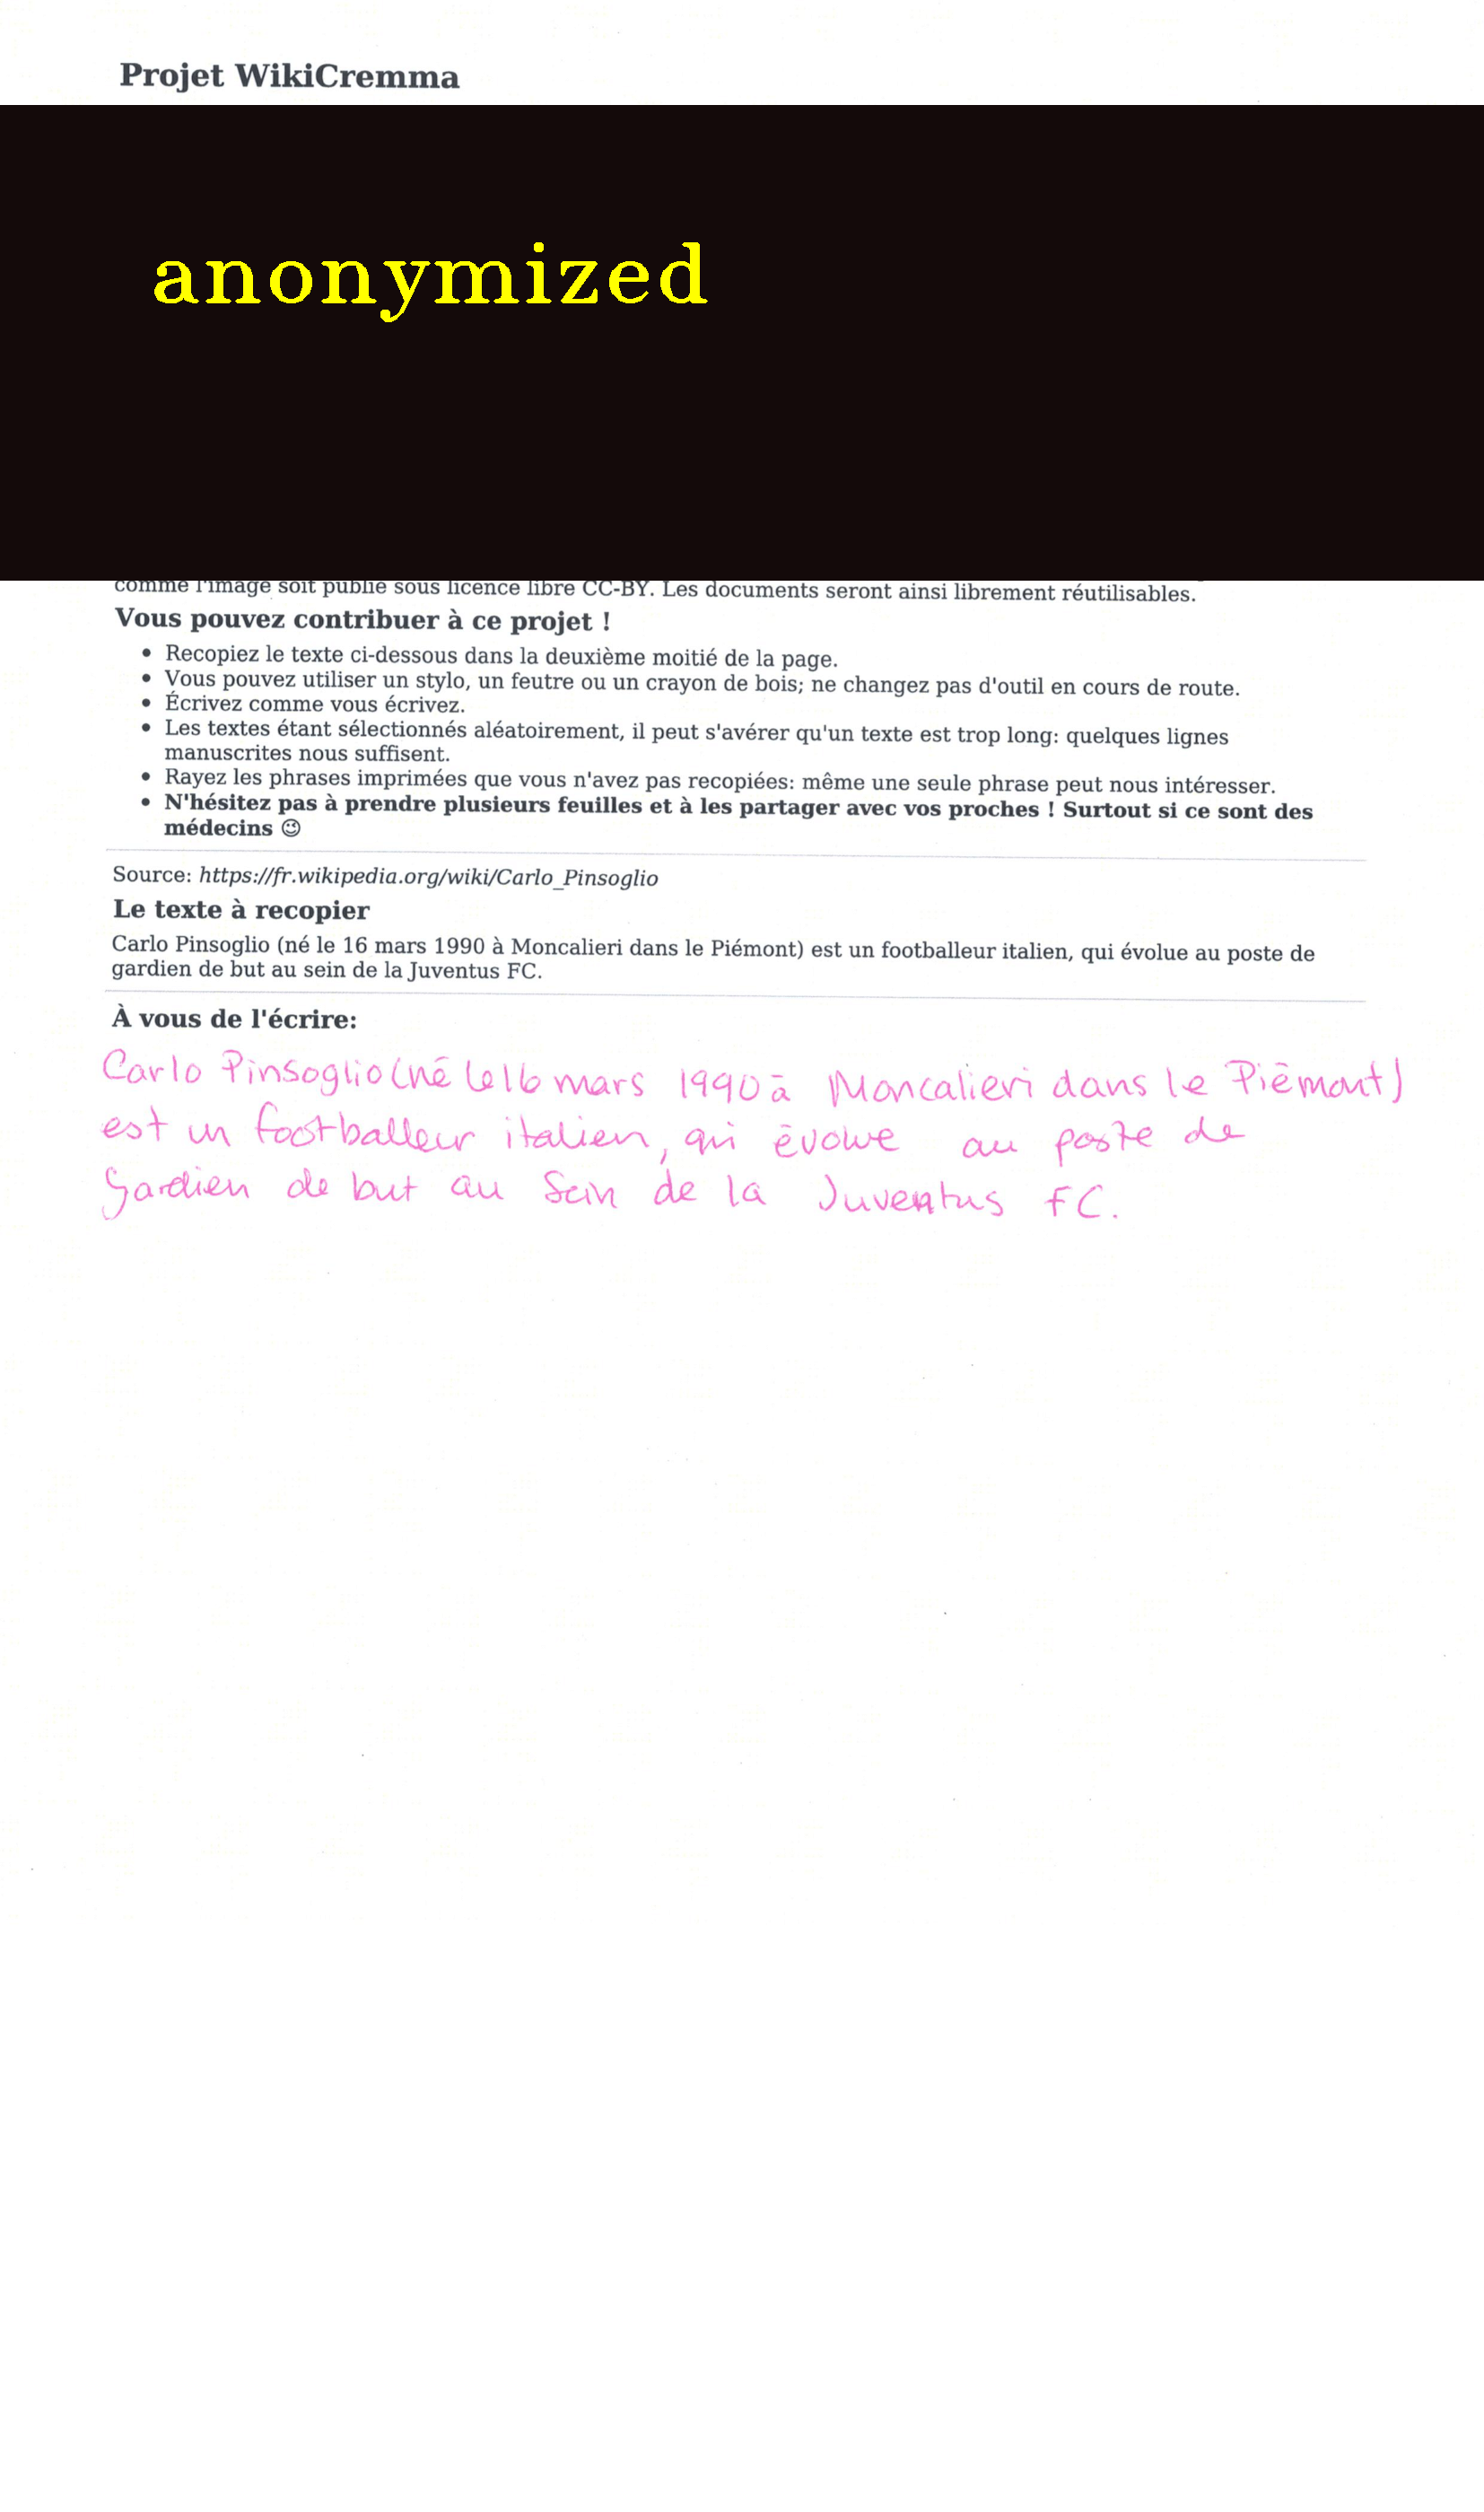 Projet WikiCremma
anonymized
comme l'image soit publié sous licence libre CC-BY. Les documents seront ainsi librement réutilisables.
Vous pouvez contribuer à ce projet !
• Recopiez le texte ci-dessous dans la deuxième moitié de la page.
• Vous pouvez utiliser un stylo, un feutre ou un crayon de bois; ne changez pas d'outil en cours de route.
• Écrivez comme vous écrivez.
• Les textes étant sélectionnés aléatoirement, il peut s'avérer qu'un texte est trop long: quelques lignes
manuscrites nous suffisent.
• Rayez les phrases imprimées que vous n'avez pas recopiées: même une seule phrase peut nous intéresser.
• N'hésitez pas à prendre plusieurs feuilles et à les partager avec vos proches ! Surtout si ce sont des
médecins ☺
Source: https://fr.wikipedia.org/wiki/Carlo_Pinsoglio
Le texte à recopier
Carlo Pinsoglio (né le 16 mars 1990 à Moncalieri dans le Piémont) est un footballeur italien, qui évolue au poste de
gardien de but au sein de la Juventus FC.
À vous de l'écrire:
Carlo Pinsoglio (né le 16 mars 1990 à Moncalieri dans le Piémont)
est un footballeur italien, qui évolue au poste de
gardien de but au sein de la Juventus FC.